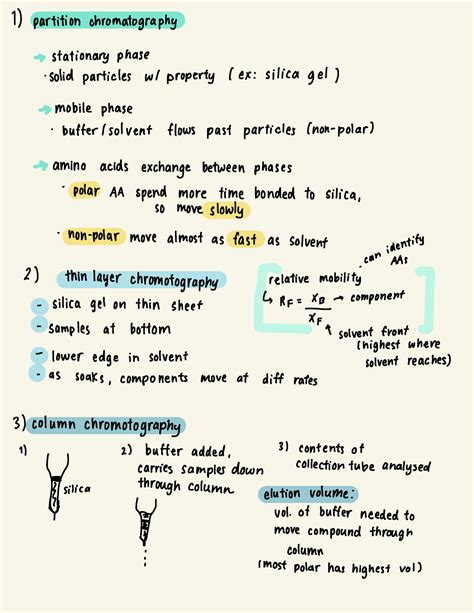 1) partition chromatography
→ stationary phase
· solid particles w/ property (ex: silica gel)
→ mobile phase
· buffer/solvent flows past particles (non-polar)
→ amino acids exchange between phases
· polar AA spend more time bonded to silica,
so move slowly
· non-polar move almost as fast as solvent
2) thin layer chromotography
- silica gel on thin sheet
- samples at bottom
- lower edge in solvent
- as soaks, components move at diff rates
can identify
AAs
relative mobility
↳ RF = XB → component
XF
solvent front
(highest where
solvent reaches)
3) column chromotography
1)
silica
2) buffer added,
carries samples down
through column
3) contents of
collection tube analysed
elution volume:
vol. of buffer needed to
move compound through
column
(most polar has highest vol)